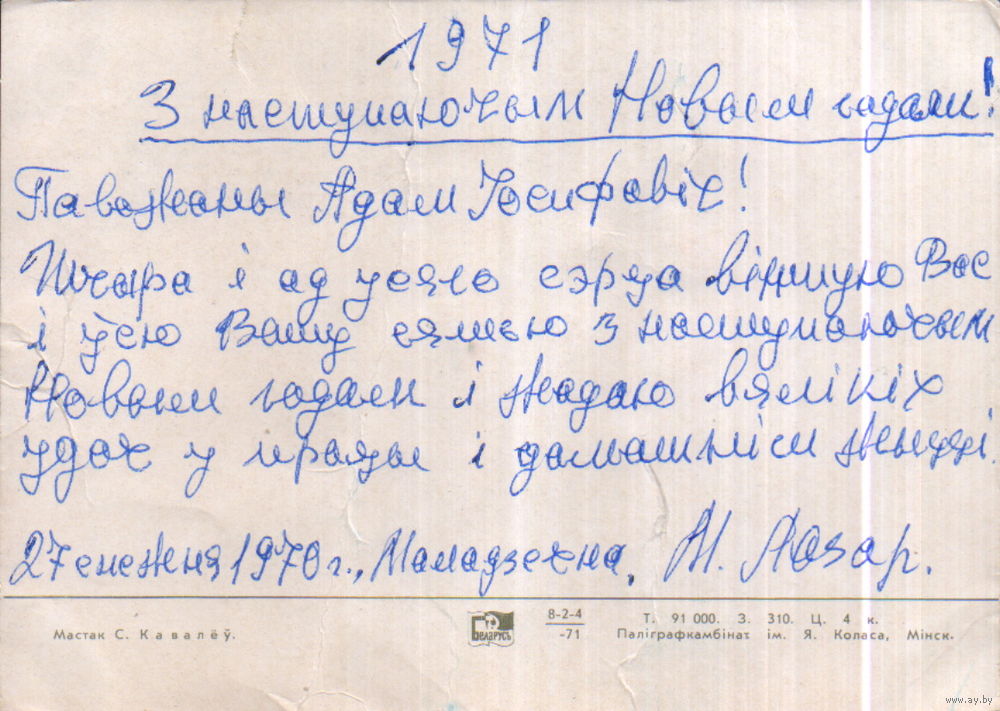 1971
З наступаючым Новым годам!
Паважаны Адам Іосифовіч!
Шчыра і ад усяго сэрца віншую Вас
і ўсю Вашу сям'ю з наступаючым
Новым годам і жадаю вялікіх
удач у працы і дамашнім жыцці.
27 снежня 1970 г., Маладзечна, М. Лазар.
Мастак С. Кавалёў.
БЕЛАРУСЬ
8-2-4
-71
Т. 91 000. З. 310. Ц. 4 к.
Паліграфкамбінат ім. Я. Коласа, Мінск.
www.ay.by